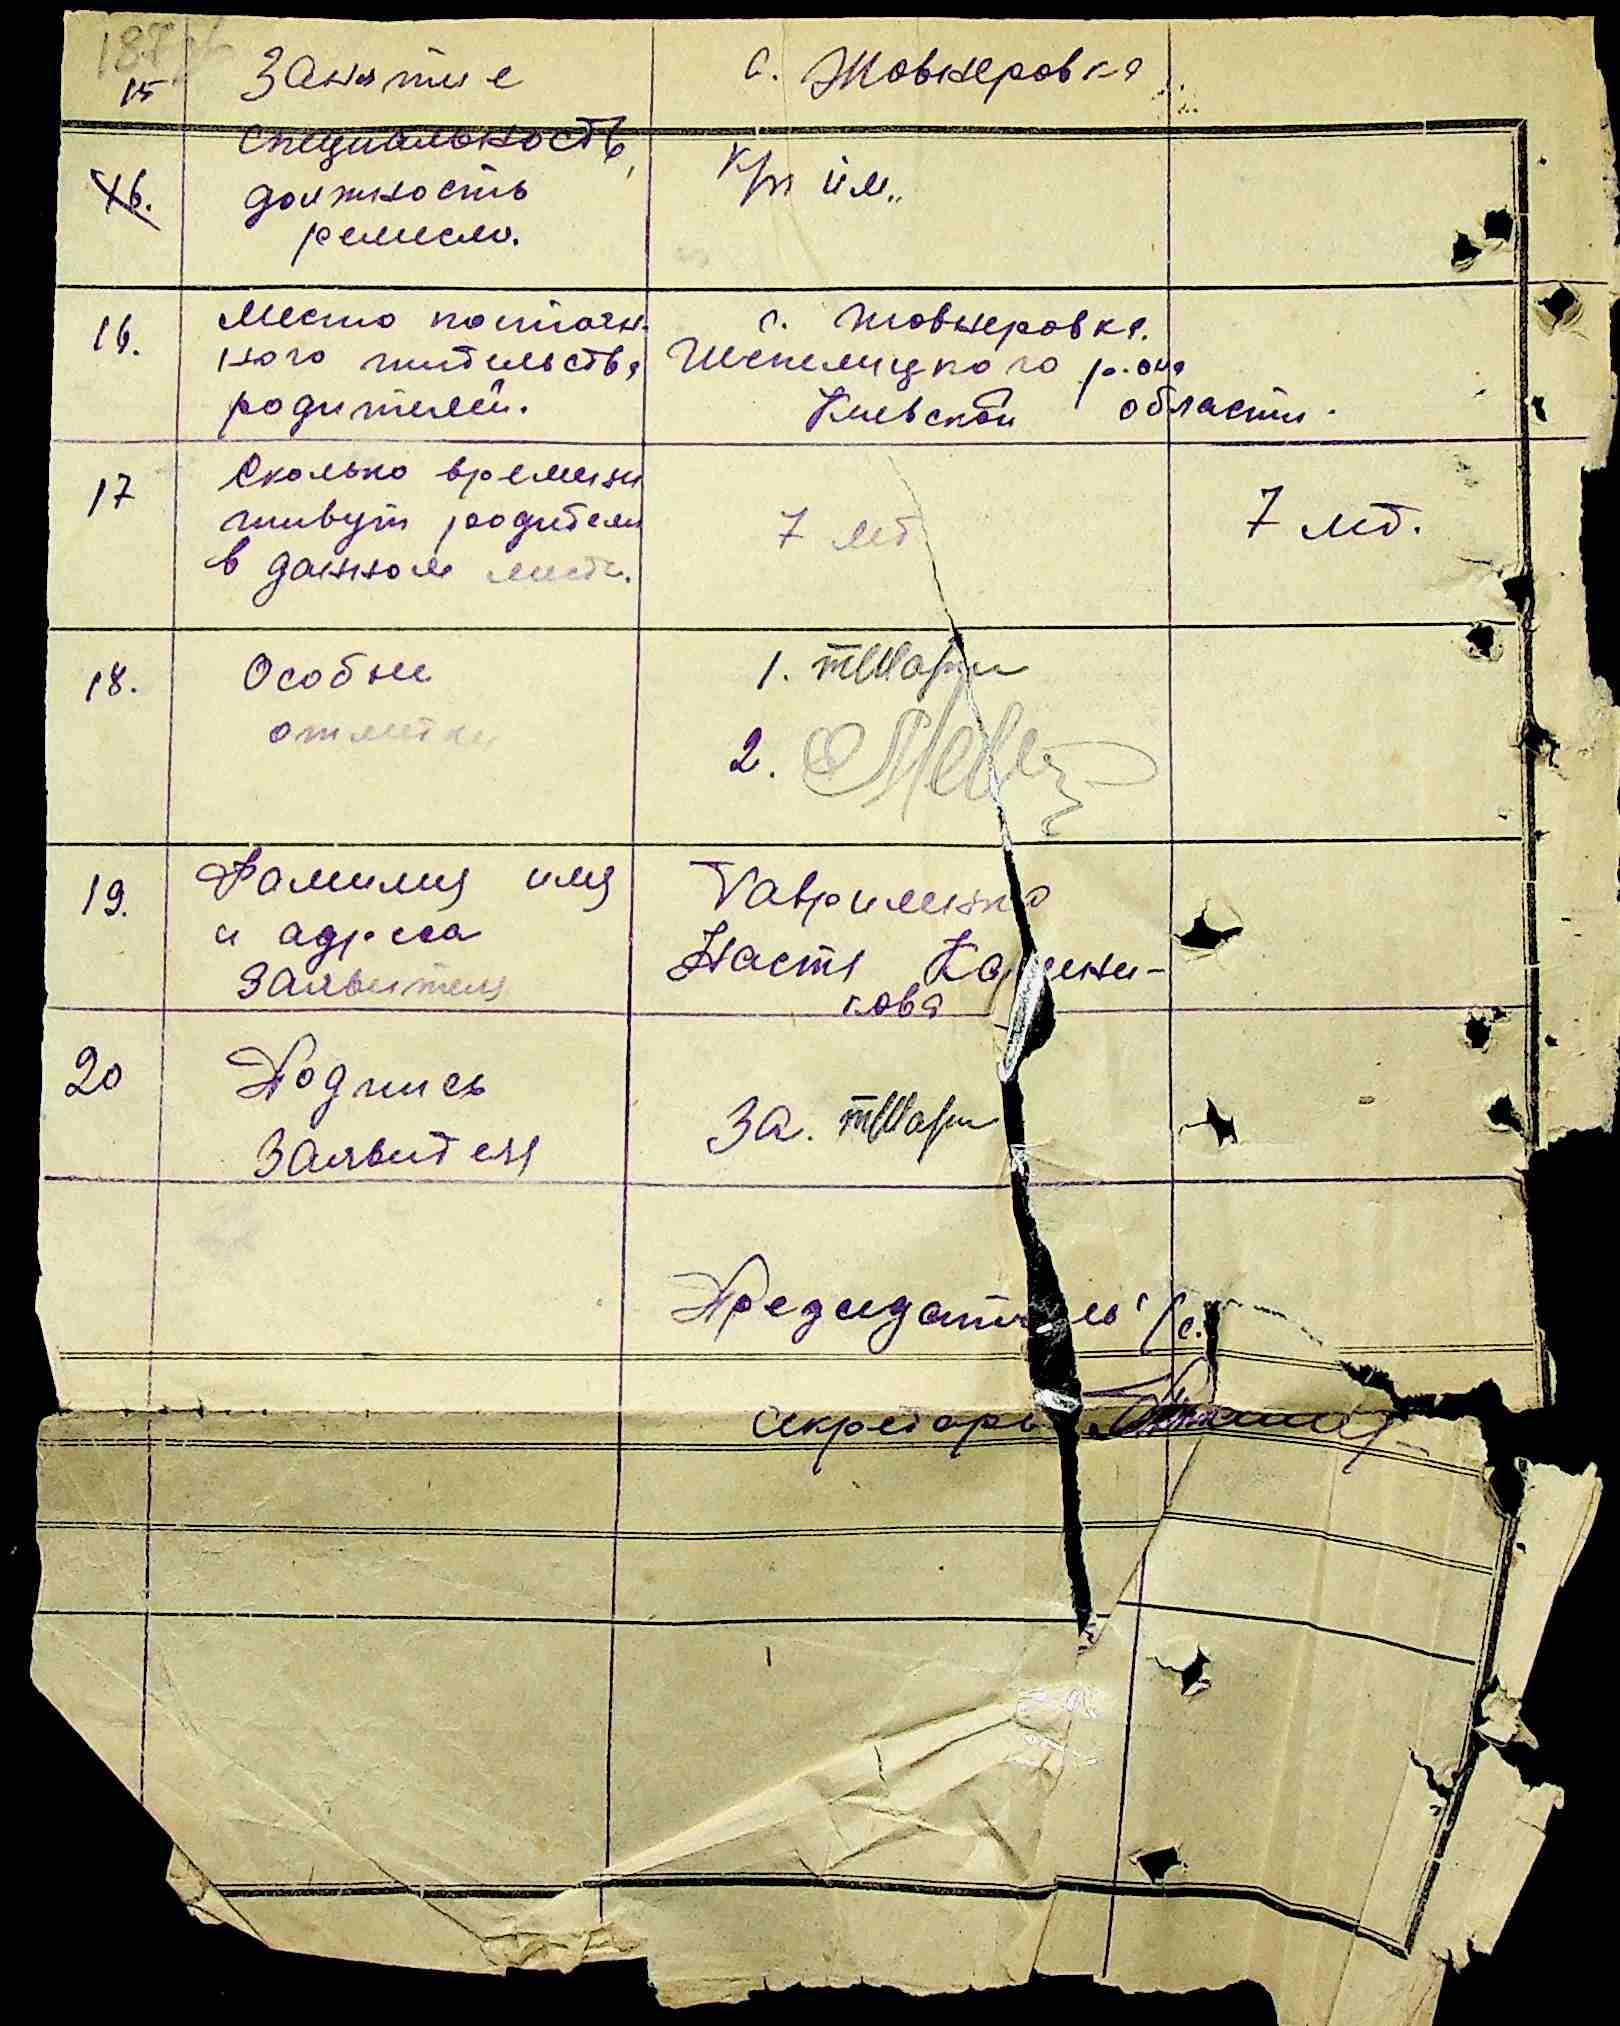 187
15 Занятие с. Жовнеровка
16. Специальность,
должность
ремесло.
16. Место постоян-
ного жительства
родителей.
с. Жовнеровка.
Шепелицкого р-она
Киевской области.
17 Сколько времени
живут родители
в данном месте.
7 лет 7 лет.
18. Особые
отметки
1.
2.
19. Фамилия имя
и адреса
заявителя
Гавриленко
Настя
кова
20 Подпись
заявителя
За.
Председатель с/с.
Секретарь